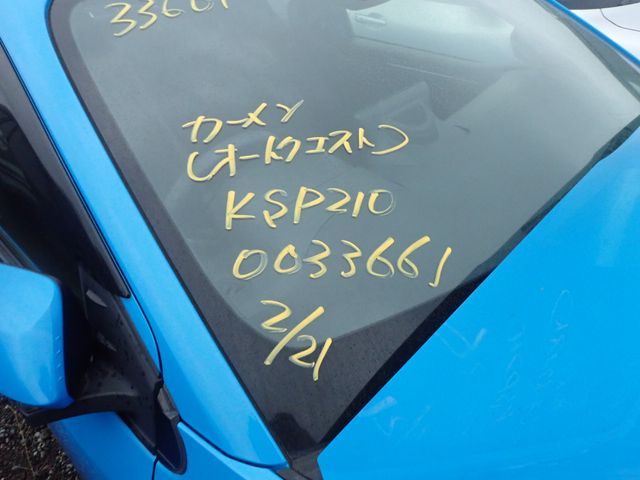 33661
カーメン
(オートクエスト)
KSP210
0033661
2/21